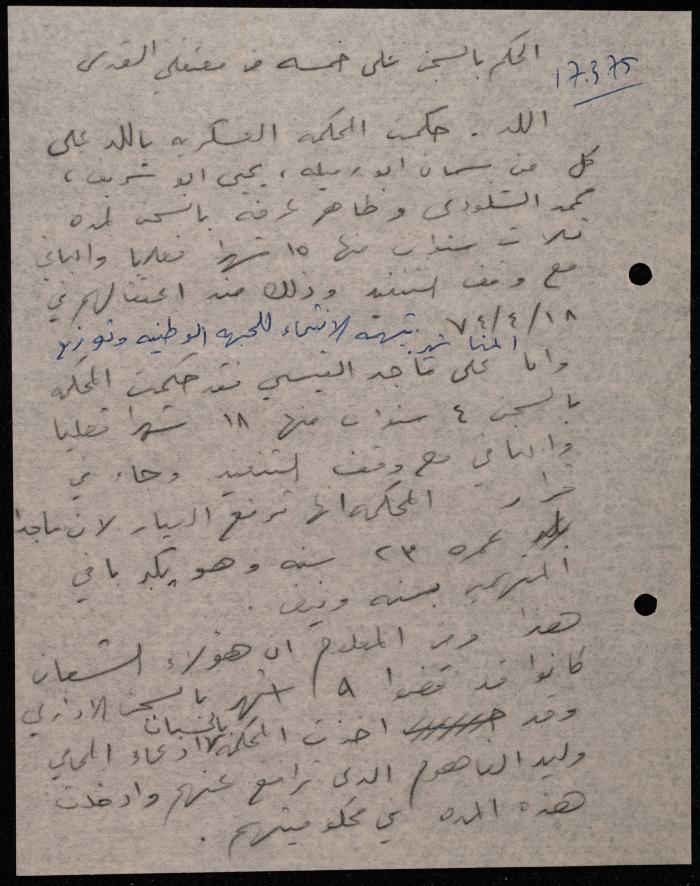 الحكم بالسجن على خمسه من معتقلي القدس
17.3.75
اللد . حكمت المحكمه العسكريه باللد على
كل من سماح ابو رميله ، يحيى ابو شريف ،
محمد الشلودى و ظاهر عرفه بالسجن لمده
ثلاث سنوات منها ١٥ شهرا فعليا والباقي
مع وقف التنفيذ وذلك منذ اعتقالهم في
١٨/٤/٧٤ بتهمه الانتماء للجبهه الوطنيه وتوزيع
المناشير
واما على ماجد القيسي فقد حكمت المحكمه
بالسجن ٤ سنوات منها ١٨ شهرا فعليا
والباقي مع وقف التنفيذ وجاء في
قرار المحكمه انها ترفع لان ماجدا
عمره ٢٣ سنه وهو يكبر باقي
المتهمين بسنه ونيف .
هذا ومن المعلوم ان هؤلاء الشبان
كانوا قد قضوا ٩ اشهر بالسجن الاداري
وقد اخذت المحكمه بالحسبان ادعاء المحامي
وليد الفاهوم الذى ترافع عنهم وادخلت
هذه المده في محكوميتهم .